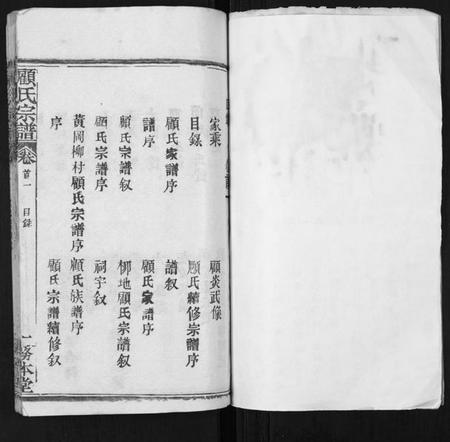 家乘
顧炎武條
目錄
顧氏續修宗譜序
顧氏家譜序
譜叙
譜序
顧氏家譜序
顧氏宗譜叙
柳地顧氏宗譜叙
顧氏宗譜序
祠宇叙
黃岡柳村顧氏宗譜序
顧氏族譜序
序
顧氏宗譜續修叙
顧氏宗譜 卷首一 目錄 一 本堂